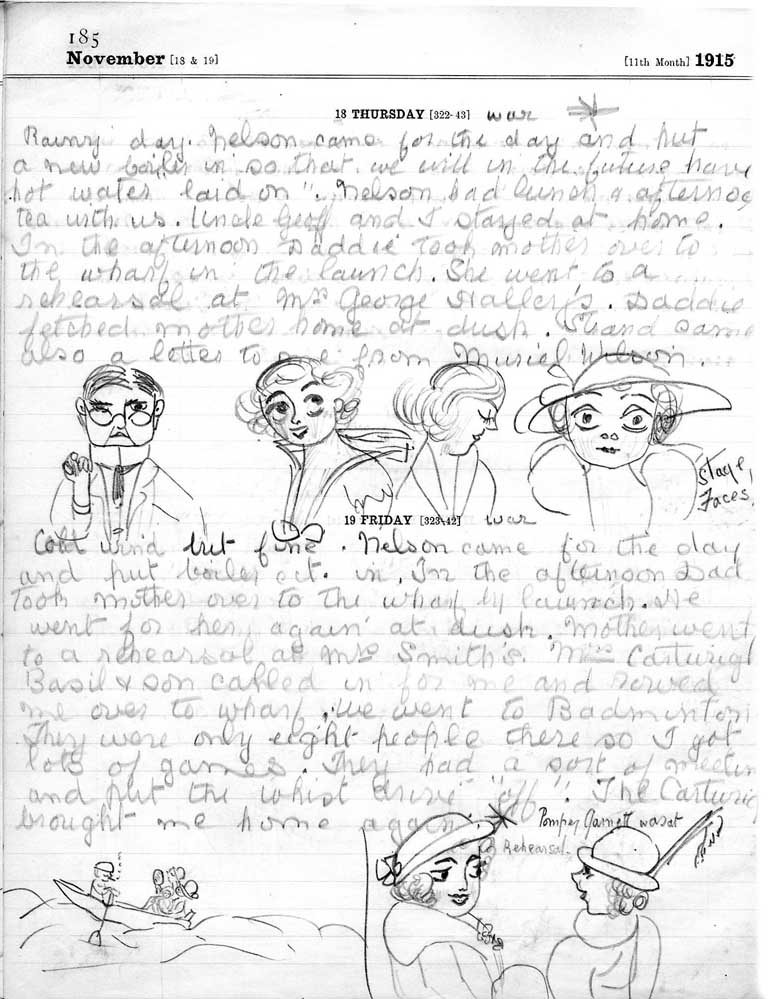 185
November [18 & 19] [11th Month] 1915
18 THURSDAY [322-43] war
Rainy day. Nelson came for the day and put
a new boiler in so that we will in the future have
hot water laid on". Nelson had lunch & afternoo
tea with us. Uncle Geoff and I stayed at home.
In the afternoon Daddie took mother over to
the wharf in the launch. She went to a
rehearsal at Mrs George Halley's. Daddie
fetched mother home at dusk. Strand came
also a letter to me from Muriel Wilson.
Stage
Faces
19 FRIDAY [323-42] war
Cold wind but fine. Nelson came for the day
and put boiler ect. in. In the afternoon Dad
took mother over to the wharf by launch. He
went for her again at dusk. Mother went
to a rehearsal at Mrs Smith's. Mrs Cartwrigh
Basil & son called in for me and rowed
me over to wharf, we went to Badminton
They were only eight people there so I got
lots of games. They had a sort of meetin
and put the whist drive "off". The Cartwrig
brought me home again
Pompey Garnett was at
Rehearsal.